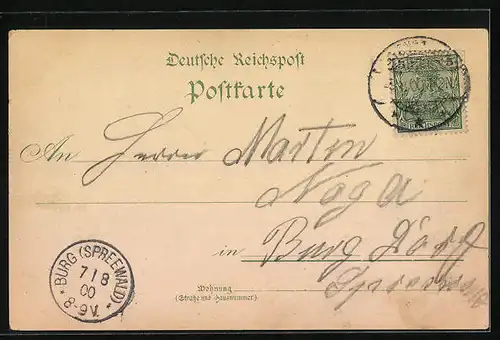 Deutsche Reichspost
Postkarte
An Herrn Marten
Noga
in Burg Dorf
Spreewald
Wohnung
(Straße und Hausnummer)
BURG (SPREEWALD)
7/8
00
8-9V.